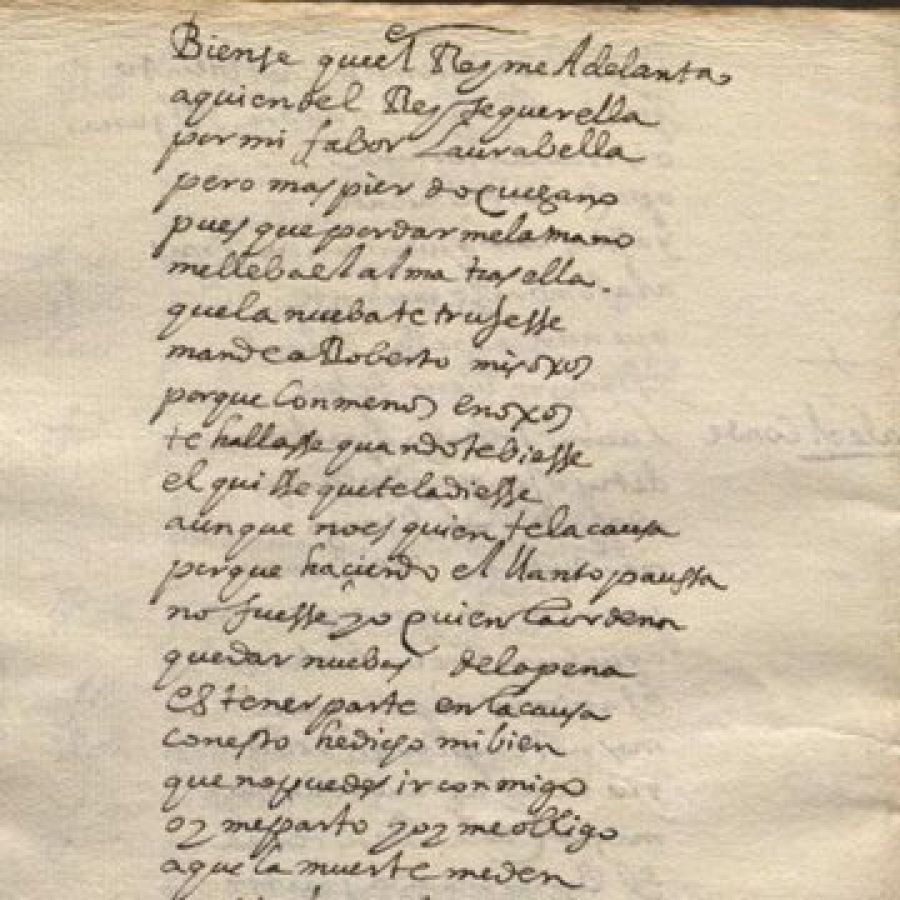 Bien se que el Rey me Adelanta
a quien del Rey se querella
por mi fabor Laura bella
pero mas pierdo que gano
pues que por darme la mano
me lleba el alma tras ella.
que la nueba te truxesse
mande a Roberto mis oxos
porque con menos enoxos
te hallasse quando te biesse
el quisse que te la diesse
aunque no es quien te la causa
porque haciendo el llanto paussa
no fuesse yo quien la ordena
que dar nuebas de la pena
es tener parte en la causa
con esto he dicho mi bien
que no puedes ir conmigo
oy me parto y oy me obligo
a que la muerte me den